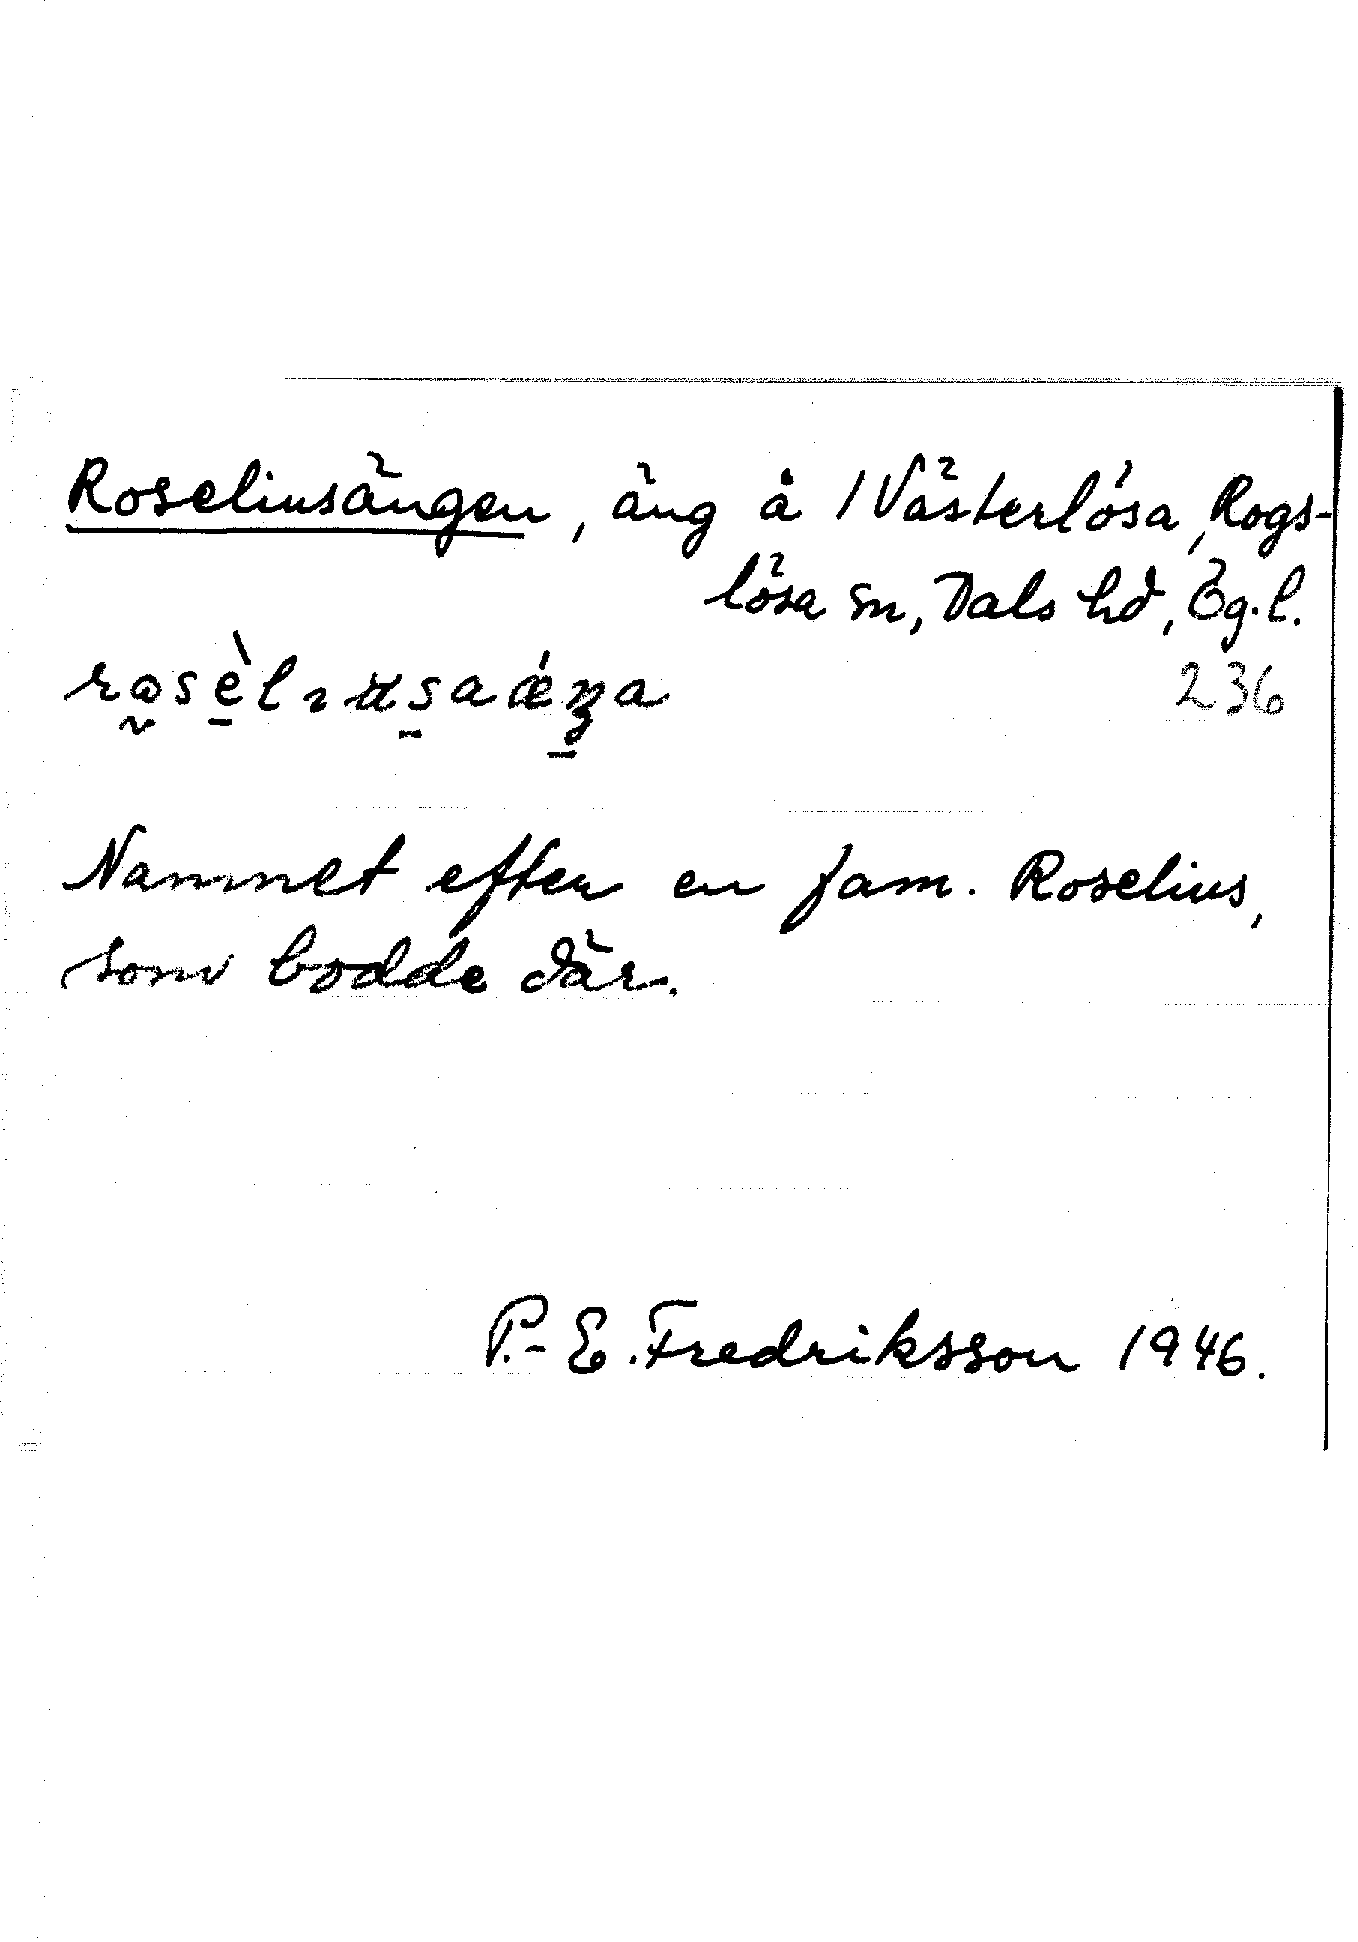 Roseliusängen, äng å 1 Västerlösa, Rogs-
lösa sn, Dals hd, Ög.l.
236
Namnet efter en fam. Roselius,
som bodde där.
P.-E. Fredriksson 1946.